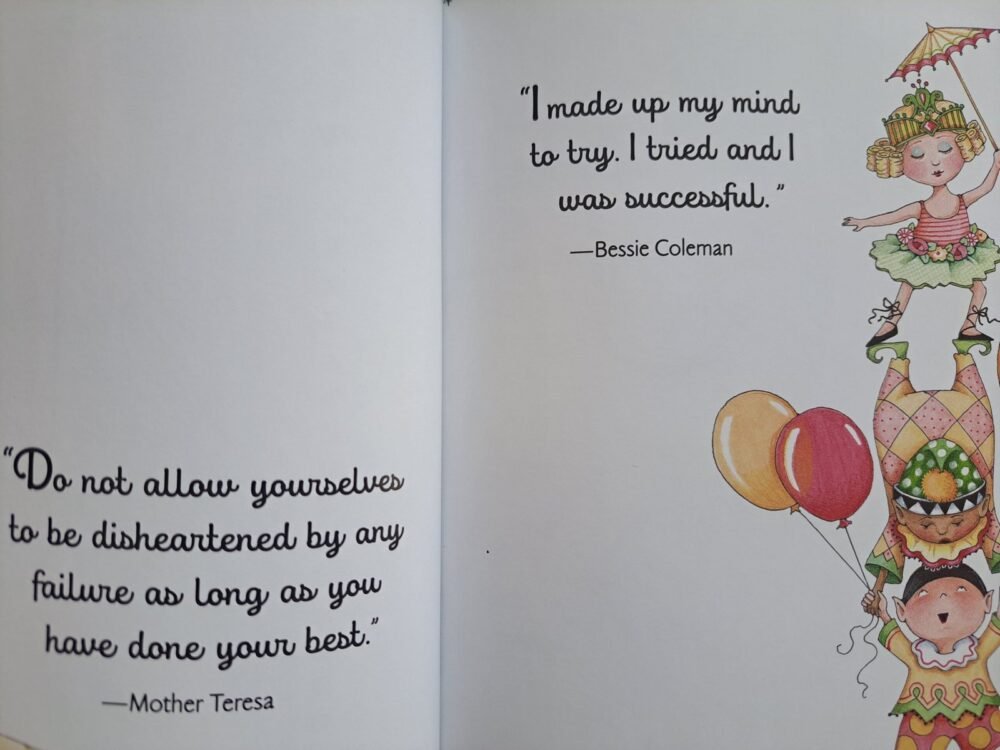 “Do not allow yourselves
to be disheartened by any
failure as long as you
have done your best.”
—Mother Teresa
“I made up my mind
to try. I tried and I
was successful.”
—Bessie Coleman